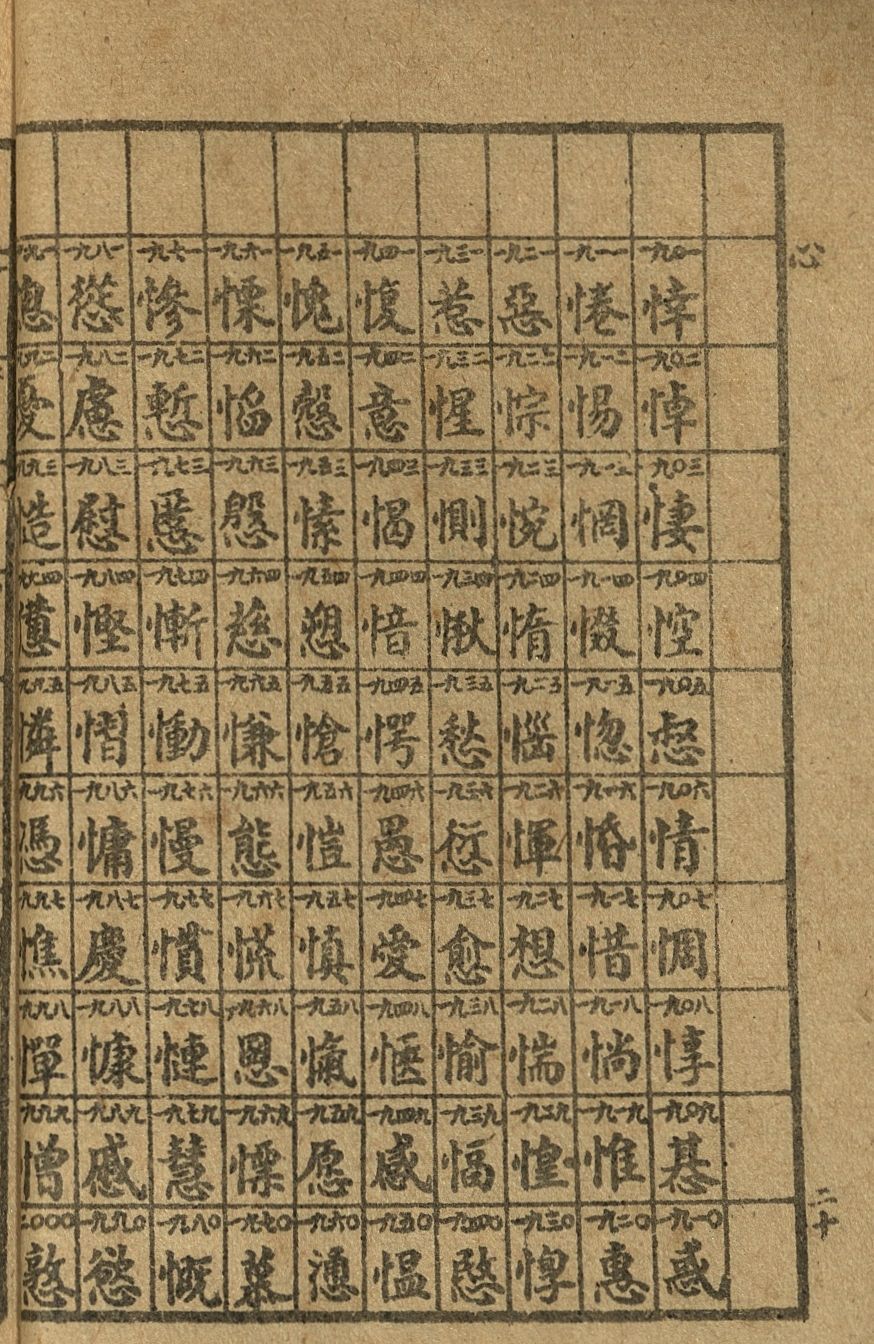 心
一九〇一 悻
一九〇二 悼
一九〇三 悽
一九〇四 悾
一九〇五 惄
一九〇六 情
一九〇七 惆
一九〇八 惇
一九〇九 惎
一九一〇 惑
一九一一 惓
一九一二 惕
一九一三 惘
一九一四 惙
一九一五 惚
一九一六 惛
一九一七 惜
一九一八 惝
一九一九 惟
一九二〇 惠
一九二一 惡
一九二二 悰
一九二三 惋
一九二四 惰
一九二五 惱
一九二六 惲
一九二七 想
一九二八 惴
一九二九 惶
一九三〇 惸
一九三一 惹
一九三二 惺
一九三三 惻
一九三四 愀
一九三五 愁
一九三六 愆
一九三七 愈
一九三八 愉
一九三九 愊
一九四〇 愍
一九四一 愎
一九四二 意
一九四三 愒
一九四四 愔
一九四五 愕
一九四六 愚
一九四七 愛
一九四八 愜
一九四九 感
一九五〇 愠
一九五一 愧
一九五二 愨
一九五三 愫
一九五四 愬
一九五五 愴
一九五六 愷
一九五七 慎
一九五八 愾
一九五九 愿
一九六〇 慂
一九六一 慄
一九六二 慆
一九六三 慇
一九六四 慈
一九六五 慊
一九六六 態
一九六七 慌
一九六八 慁
一九六九 慓
一九七〇 慕
一九七一 慘
一九七二 慙
一九七三 慝
一九七四 慚
一九七五 慟
一九七六 慢
一九七七 慣
一九七八 慩
一九七九 慧
一九八〇 慨
一九八一 慫
一九八二 慮
一九八三 慰
一九八四 慳
一九八五 慴
一九八六 慵
一九八七 慶
一九八八 慷
一九八九 慼
一九九〇 慾
九九一
九九二 憂
九九三 慥
九九四 憊
九九五 憐
九九六 憑
九九七 憔
九九八 憚
九九九 憎
二〇〇〇 憝
二十